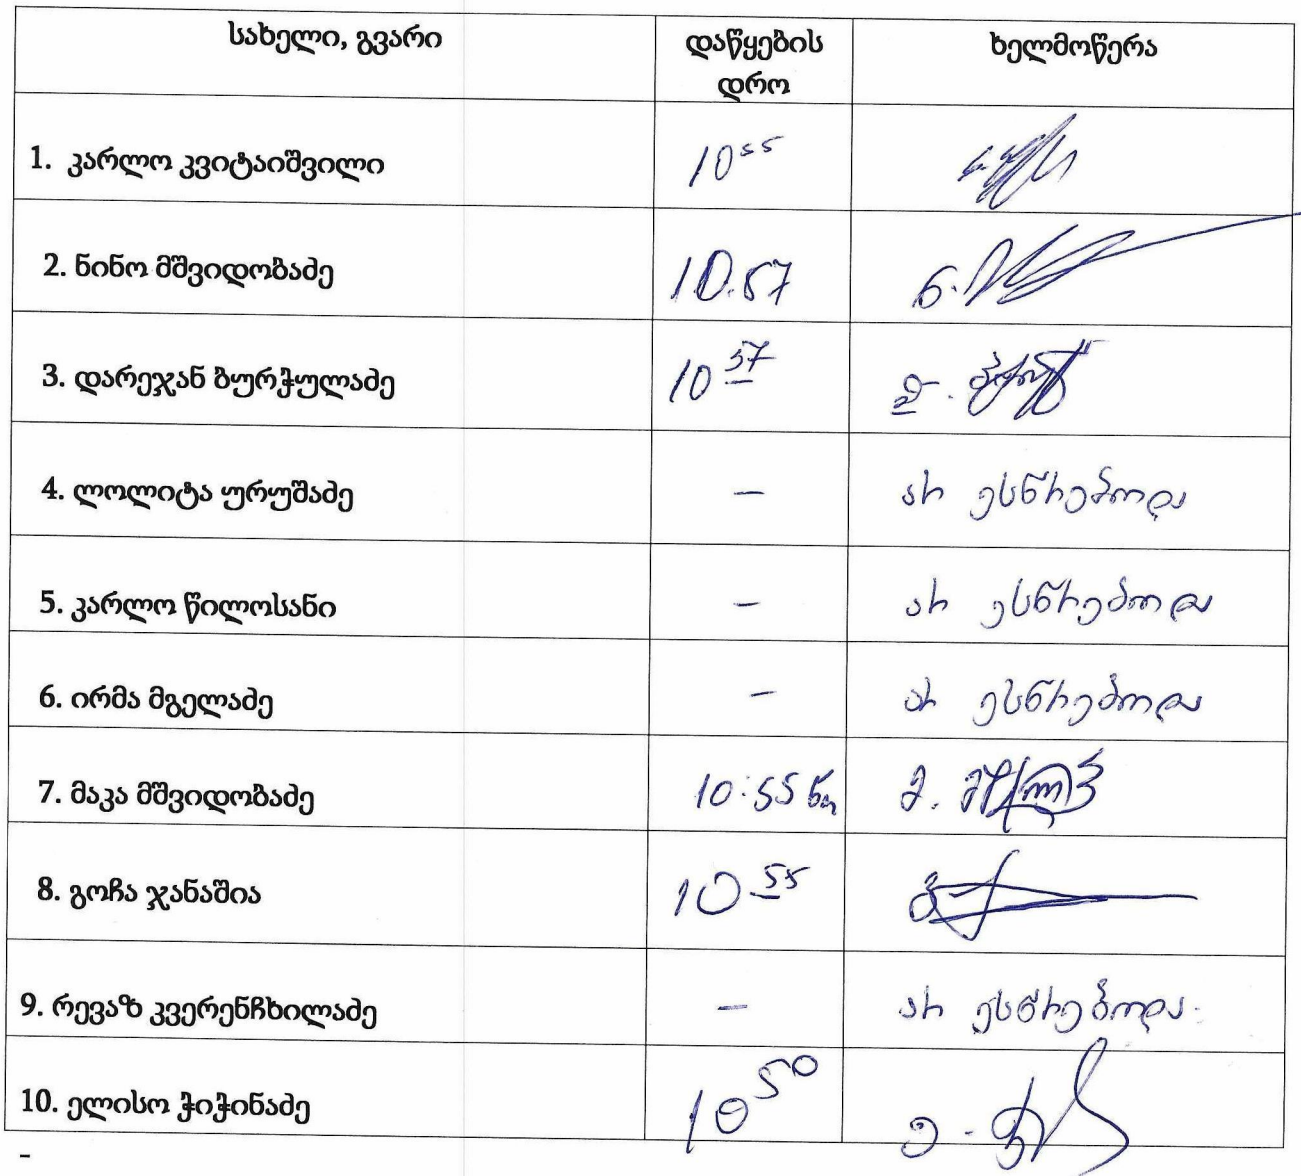 სახელი, გვარი დაწყების დრო ხელმოწერა
1. კარლო კვიტაიშვილი 10⁵⁵
2. ნინო მშვიდობაძე 10.57 ნ.
3. დარეჯან ბურჭულაძე 10⁵⁷ დ.
4. ლოლიტა ურუშაძე – არ ესწრებოდა
5. კარლო წილოსანი – არ ესწრებოდა
6. ირმა მგელაძე – არ ესწრებოდა
7. მაკა მშვიდობაძე 10:55 წთ მ.
8. გოჩა ჯანაშია 10⁵⁵
9. რევაზ კვერენჩხილაძე – არ ესწრებოდა.
10. ელისო ჭიჭინაძე 10⁵⁰ ე.
-